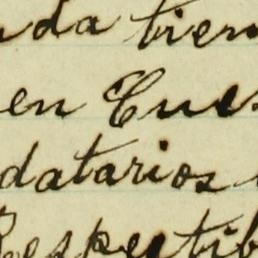 nda tien
en Cues
datarios
Respectib